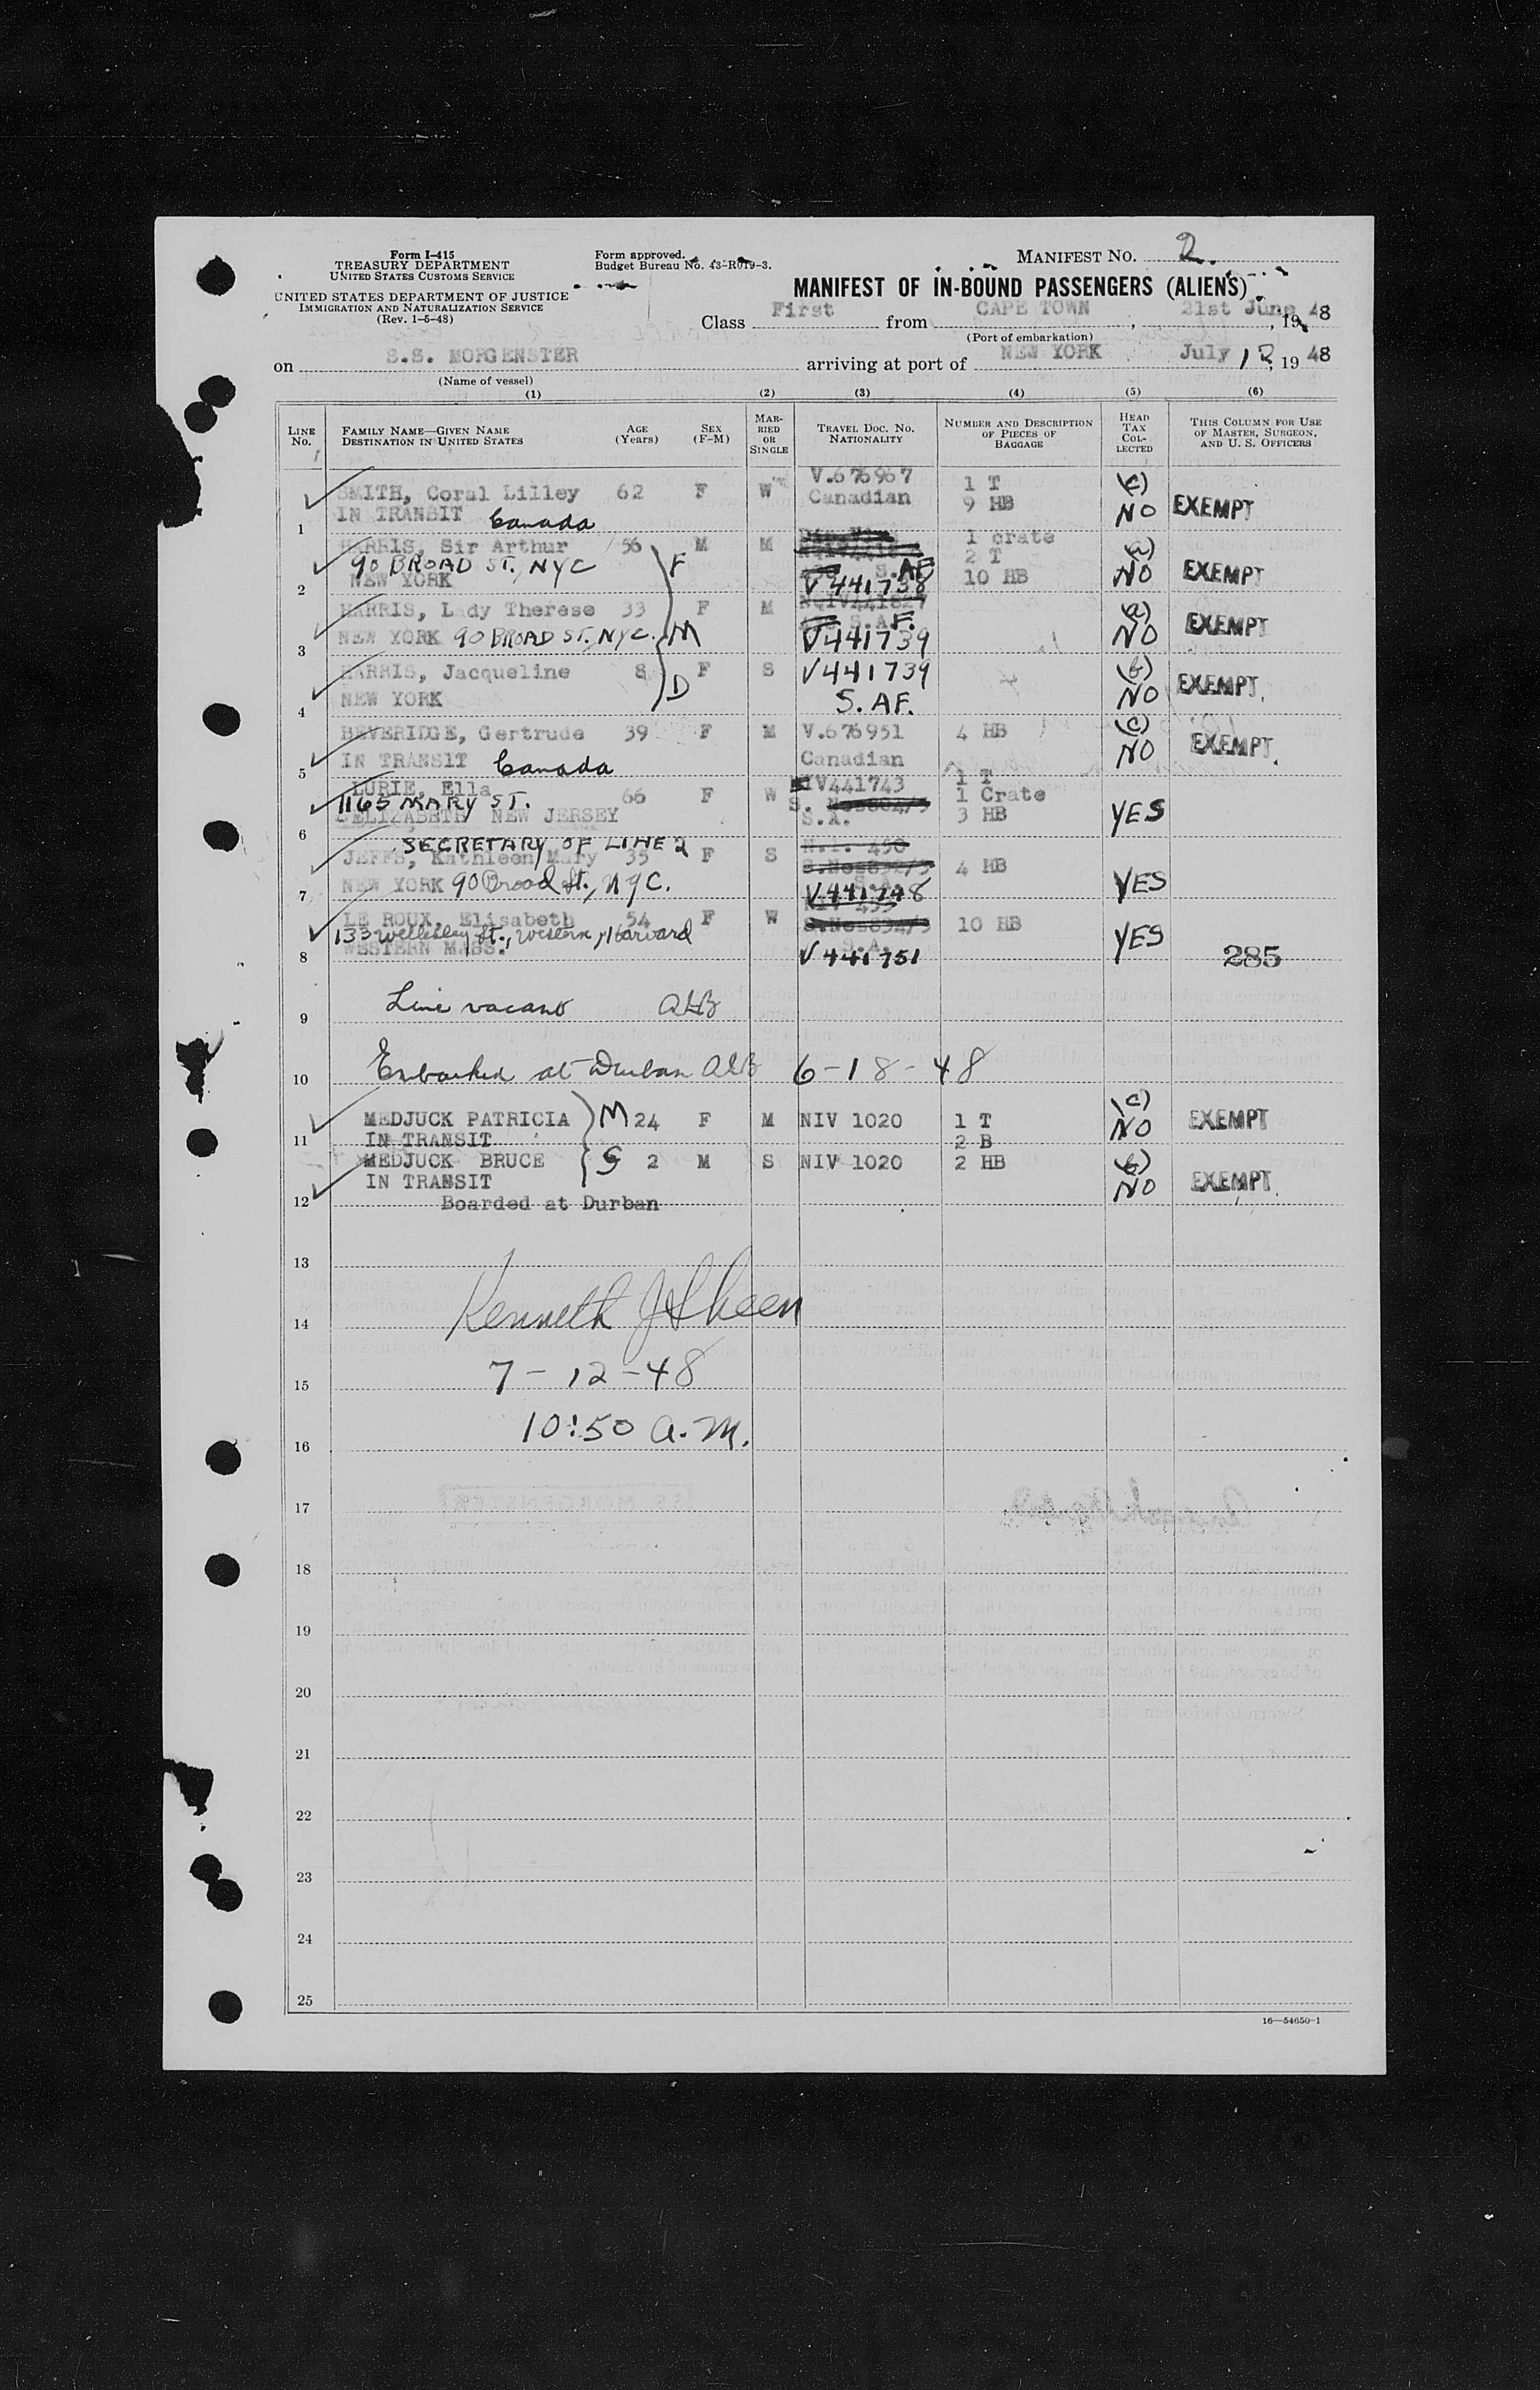 Form I-415
TREASURY DEPARTMENT
UNITED STATES CUSTOMS SERVICE
UNITED STATES DEPARTMENT OF JUSTICE
IMMIGRATION AND NATURALIZATION SERVICE
(Rev. 1-5-48)
Form approved.
Budget Bureau No. 43-R019-3.
MANIFEST NO. 2.
MANIFEST OF IN-BOUND PASSENGERS (ALIENS)
Class First from CAPE TOWN, 21st June, 1948
(Port of embarkation)
on S.S. MORGENSTER arriving at port of NEW YORK July 12, 1948
(Name of vessel)
(1) (2) (3) (4) (5) (6)
LINE No. FAMILY NAME—GIVEN NAME DESTINATION IN UNITED STATES AGE (Years) SEX (F-M) MARRIED OR SINGLE TRAVEL DOC. NO. NATIONALITY NUMBER AND DESCRIPTION OF PIECES OF BAGGAGE HEAD TAX COLLECTED THIS COLUMN FOR USE OF MASTER, SURGEON, AND U. S. OFFICERS
SMITH, Coral Lilley 62 F W V.676967 1 T (c)
1 IN TRANSIT Canada Canadian 9 HB NO EXEMPT
HARRIS, Sir Arthur 56 M M 1 crate (a)
90 BROAD ST., NYC F S. AF. 2 T
2 NEW YORK V441738 10 HB NO EXEMPT
HARRIS, Lady Therese 33 F M NQIV441827 (a)
S.A.F.
3 NEW YORK 90 BROAD ST. NYC. M V441739 NO EXEMPT
HARRIS, Jacqueline 8 F S V441739 (b)
4 NEW YORK D S. AF. NO EXEMPT.
BEVERIDGE, Gertrude 39 F M V.676951 4 HB (c)
5 IN TRANSIT Canada Canadian NO EXEMPT.
LURIE, Ella 66 F W IV441743 1 T
1165 MARY ST. 1 Crate
6 ELIZABETH NEW JERSEY S.A. 3 HB YES
SECRETARY OF LINE 2
JEFFS, Kathleen Mary 35 F S 4 HB
7 NEW YORK 90 Broad St., NYC. V441748 YES
LE ROUX, Elisabeth 54 F W 10 HB
133 Wellesley St., Western, Harvard S.A.
8 WESTERN MASS. V441751 YES 285
9 Line vacant
10 Embarked at Durban 6-18-48
MEDJUCK PATRICIA M 24 F M NIV 1020 1 T (c)
11 IN TRANSIT 2 B NO EXEMPT
MEDJUCK BRUCE S 2 M S NIV 1020 2 HB (b)
IN TRANSIT NO EXEMPT.
12 Boarded at Durban
13
14 Kenneth J Sheen
15 7-12-48
16 10:50 a.m.
17
18
19
20
21
22
23
24
25
16—54650-1